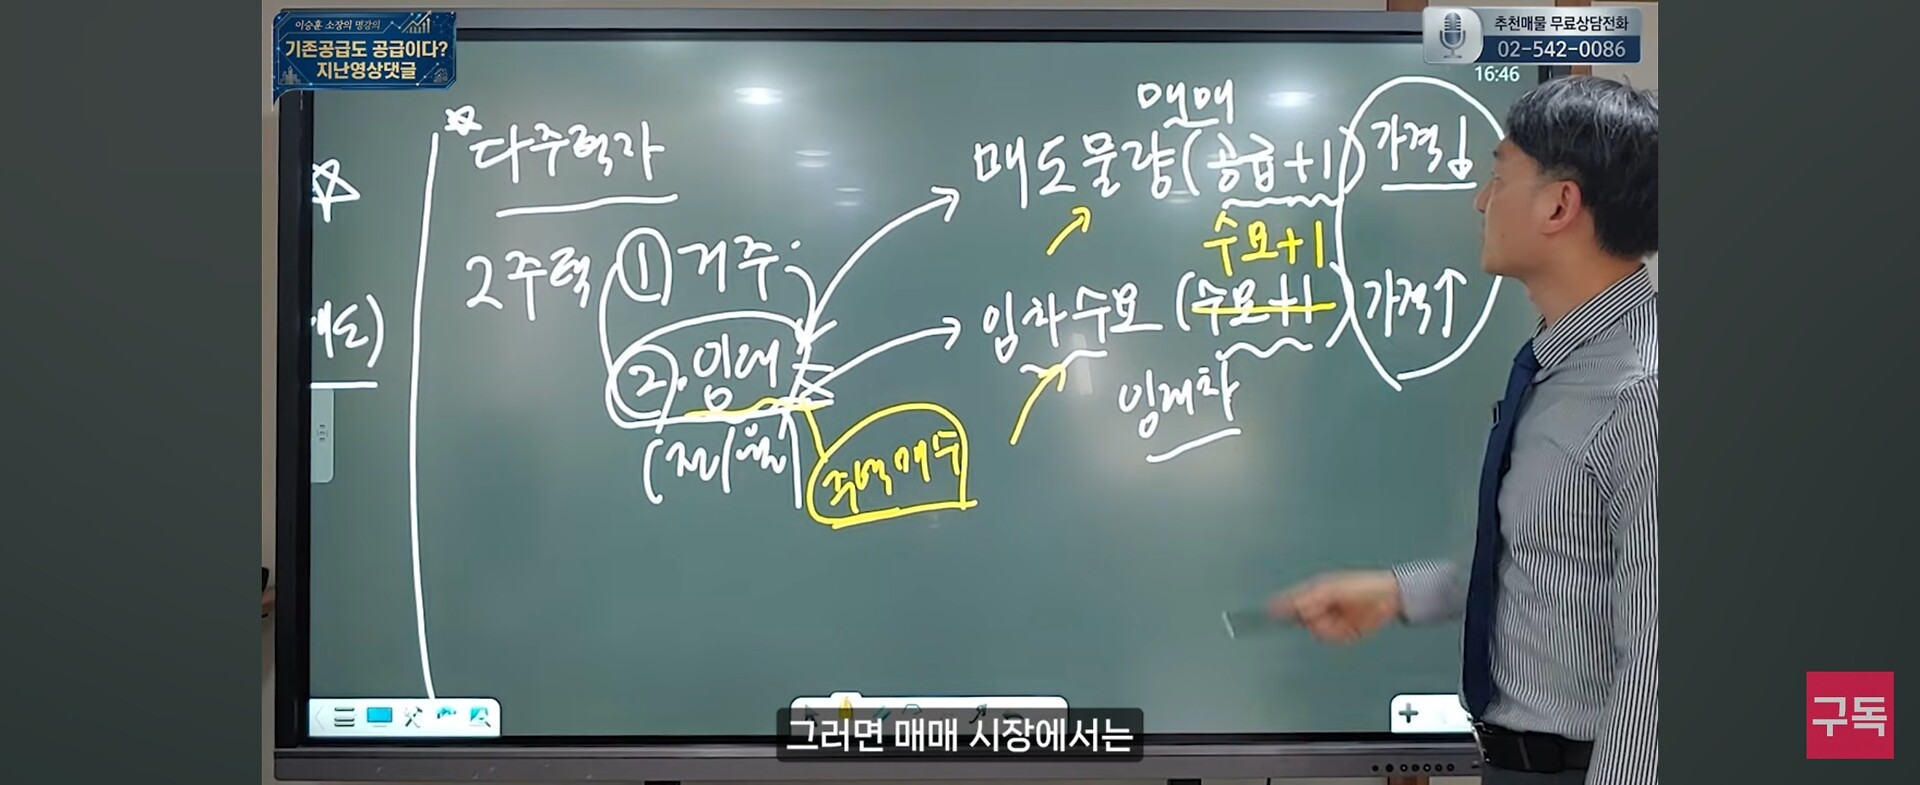 이승훈 소장의 명강의
기존공급도 공급이다?
지난영상댓글
추천매물 무료상담전화
02-542-0086
16:46
다주택자
2주택
① 거주
②. 임대
(전/월)
주택매수
매매
매도물량(공급+1) 가격↓
수요+1
임차수요(수요+1) 가격↑
임대차
그러면 매매 시장에서는
구독